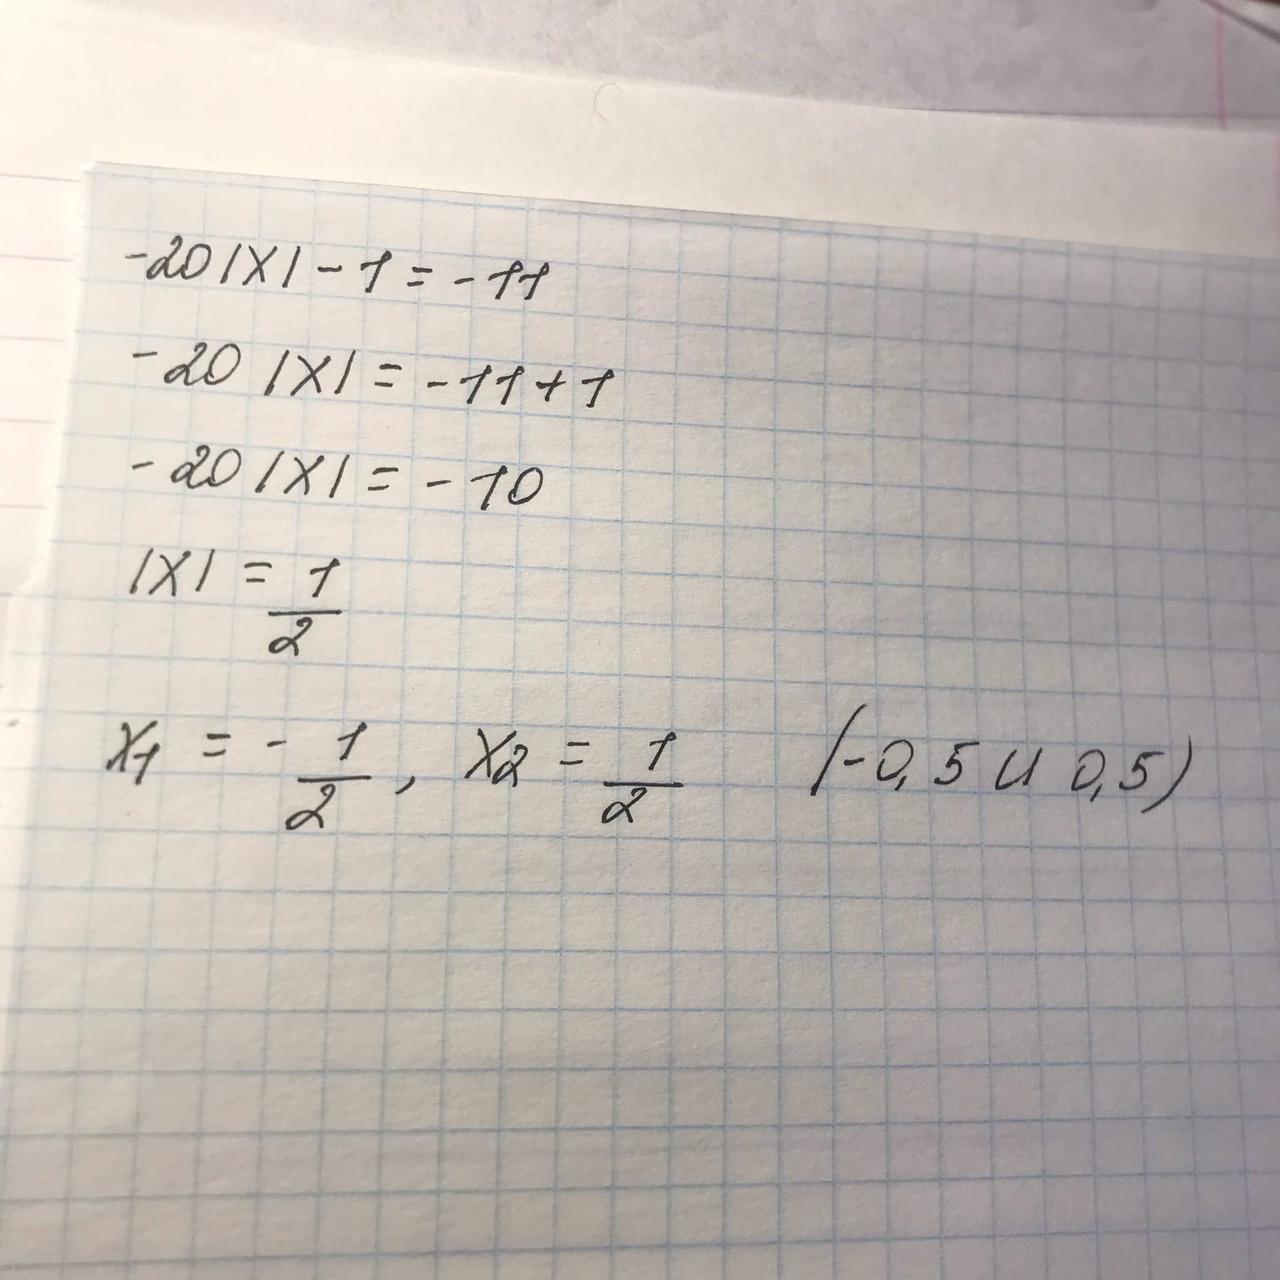 -20|X| - 1 = -11
-20 |X| = -11 + 1
-20 |X| = -10
|X| = 1/2
X1 = - 1/2, X2 = 1/2 (-0,5 и 0,5)